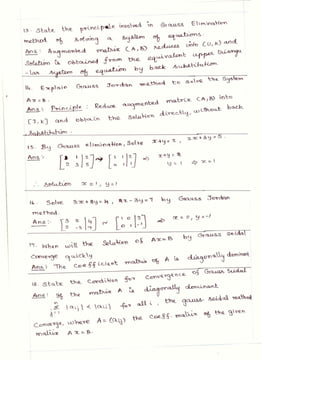 13. State the principle involved in Gauss Elimination
method of solving a system of equations.
Ans: Augmented matrix (A,B) reduces into (U,K) and
Solution is obtained from the equivalent upper Triangu
-lar system of equation by back substitution
14. Explain Gauss Jordan method to solve the System
AX=B.
Ans: Principle: Reduce augmented matrix (A,B) into
[I,K] and obtain the Solution directly, without back
Substitution.
15. By Gauss elimination, Solve x+y=2, 2x+3y=5.
Ans: [1 1 | 2] ~ [1 1 | 2] ⇒ x+y=2
[2 3 | 5] [0 1 | 1] y=1 ⇒ x=1
∴ Solution x=1, y=1
by Gauss Jordan
method.
Ans:
~ [1 0
[0 1 | -1]
y=-1
17. When will the Solution of AX=B by Gauss Seidal
Converge quickly
Ans: The Coefficient matrix of A is diagonally dominant
18. State the Condition for Convergence of Gauss Seidal
Ans: If the matrix A is diagonally dominant
|aij| < |aii| for all i, the gauss. Seidal method
Converge, where A = (aij) the Coeff. matrix of the given
matrix AX=B.